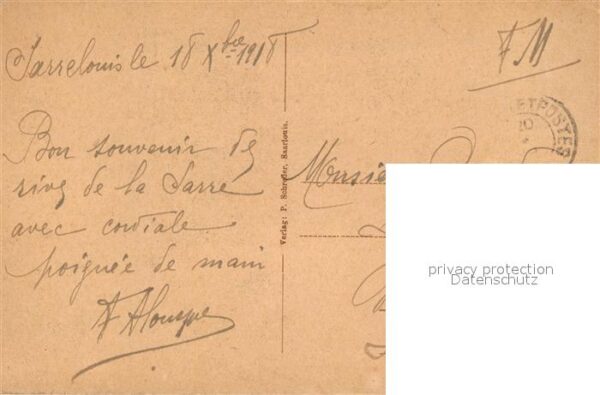 Sarrelouis le 18 Xbre 1918
FM
Bon souvenir des
rives de la Sarre
avec cordiale
poignée de main
Verlag: P. Schreder, Saarlouis.
ET POSTES
20
privacy protection
Datenschutz